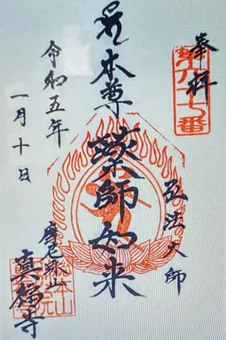 奉拝
第六十七番
弘法大師
本尊薬師如来
令和五年
一月十日
摩尼珠山
真福寺